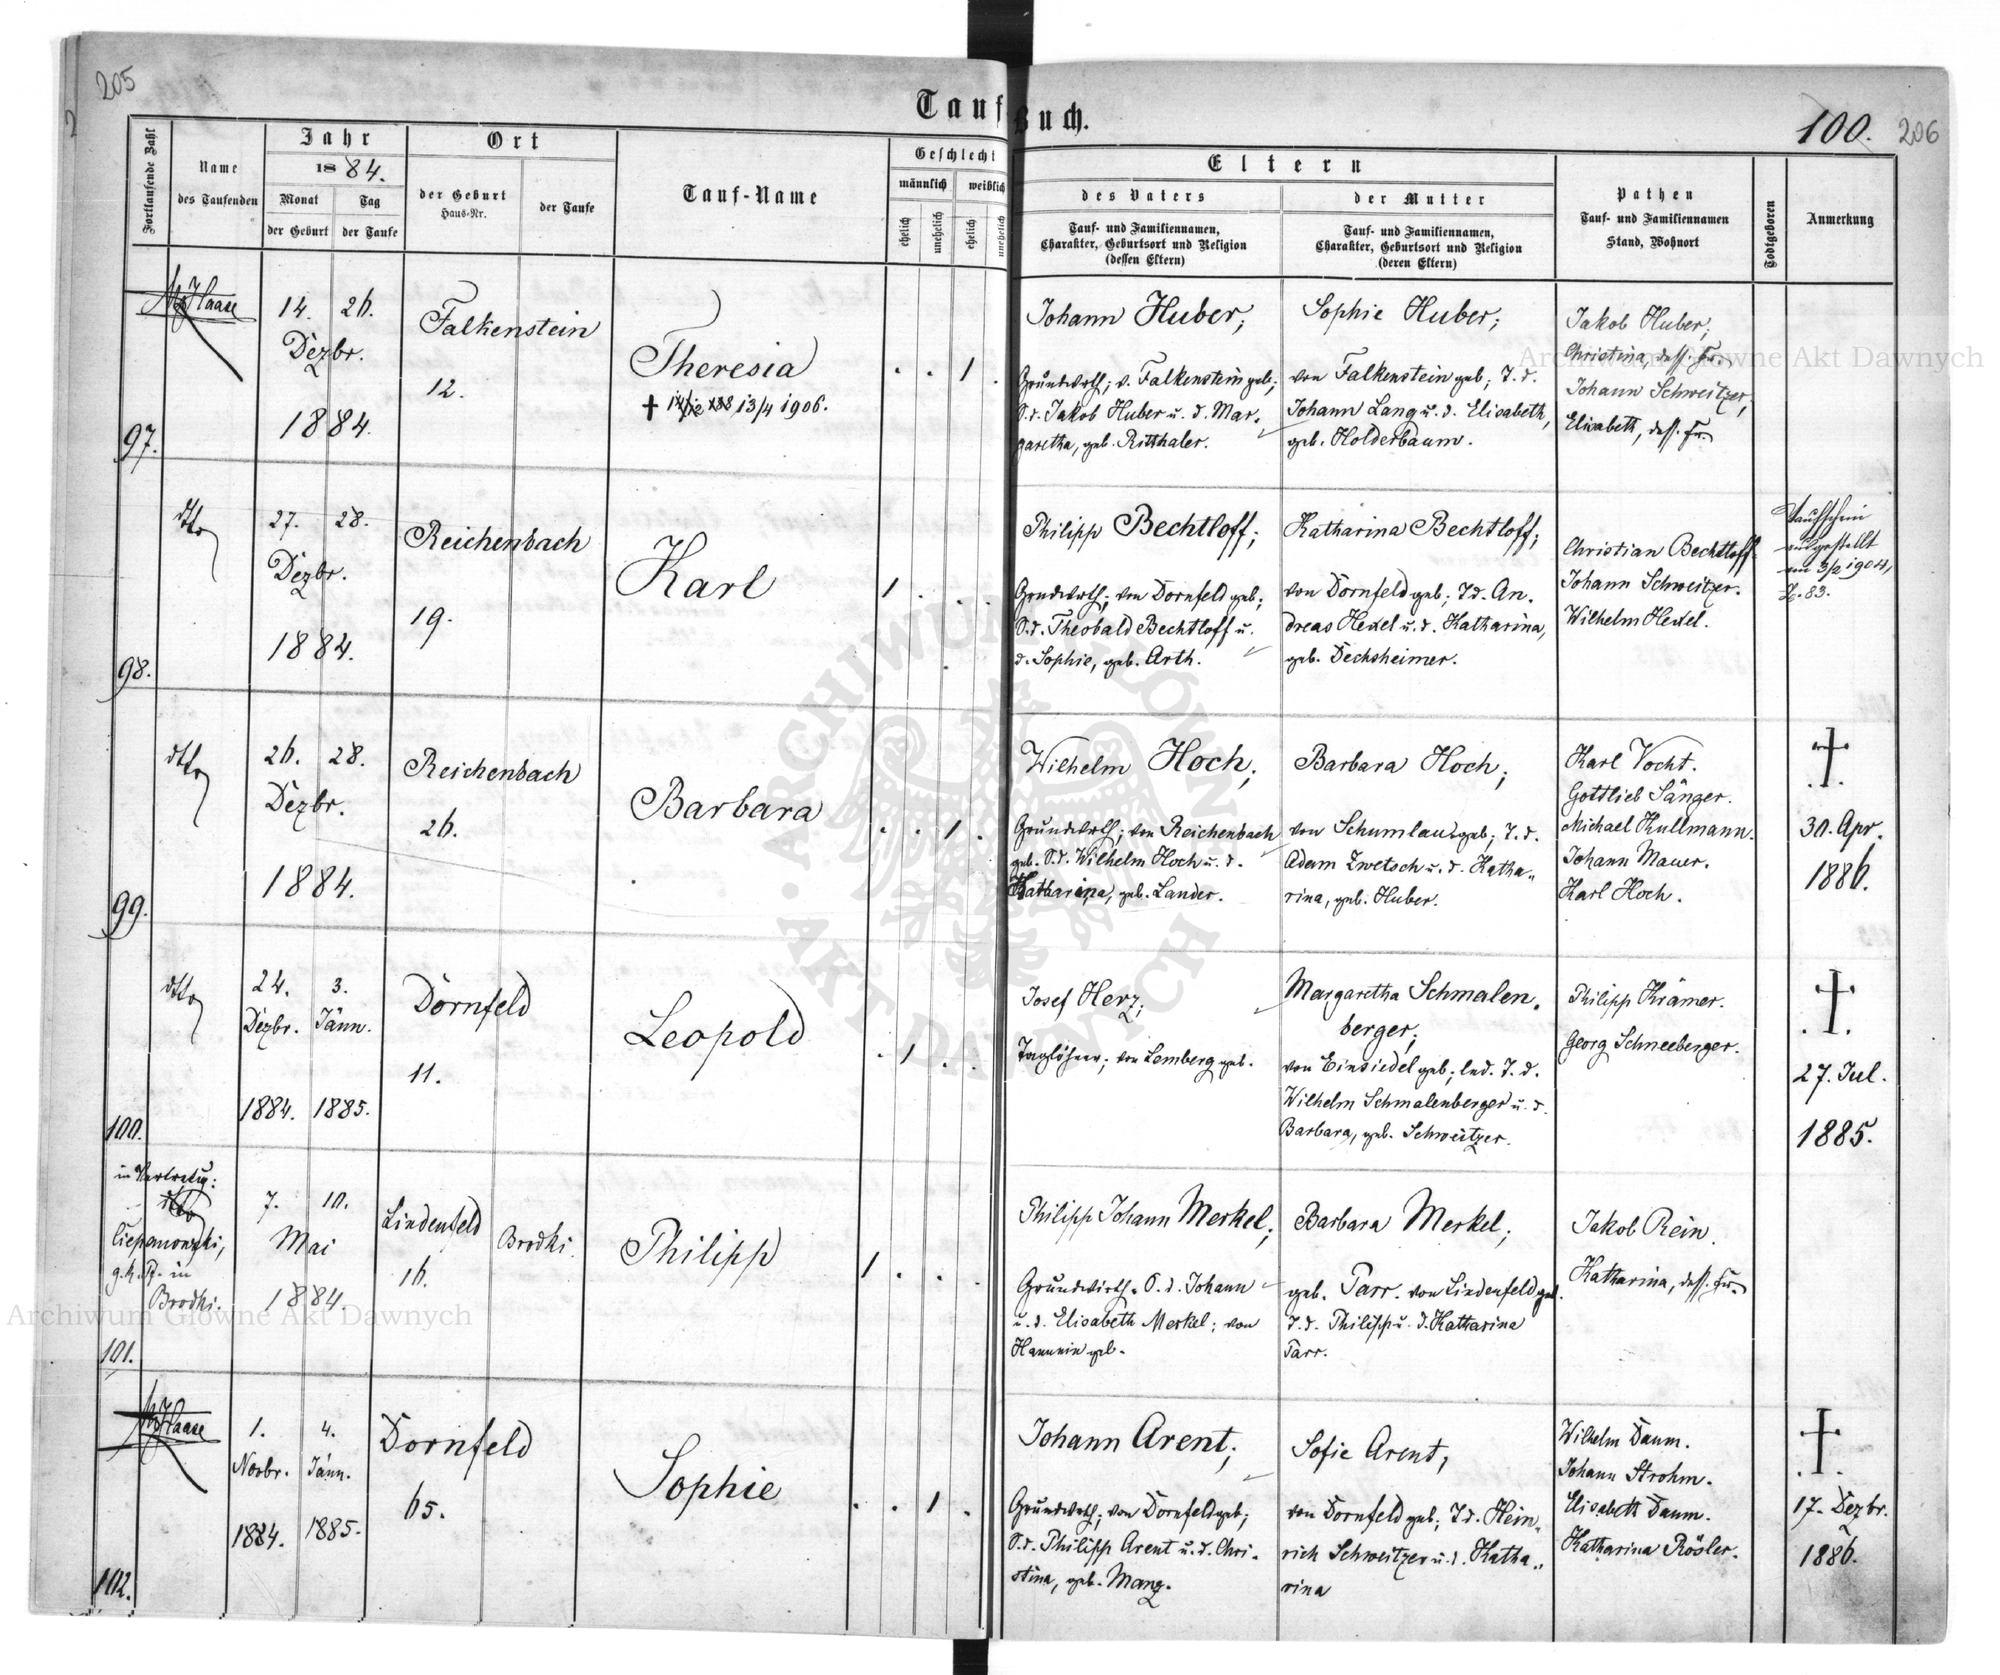 205
Tauf-Buch.
100.
206
Fortlaufende Zahl
Name
des Taufenden
Jahr
1884.
Monat
der Geburt
Tag
der Taufe
Ort
der Geburt
Haus-Nr.
der Taufe
Tauf-Name
Geschlecht
männlich
weiblich
ehelich
unehelich
ehelich
unehelich
Eltern
des Vaters
Tauf- und Familiennamen,
Charakter, Geburtsort und Religion
(dessen Eltern)
der Mutter
Tauf- und Familiennamen,
Charakter, Geburtsort und Religion
(deren Eltern)
Pathen
Tauf- und Familiennamen
Stand, Wohnort
Todtgeboren
Anmerkung
97.
Haase
14. 26.
Dezbr.
1884.
Falkenstein
12.
Theresia
† 13/4 1906.
1
Johann Huber;
Grundwrth; v. Falkenstein geb;
S. d. Jakob Huber u. d. Mar-
garetha, geb. Ritthaler.
Sophie Huber;
von Falkenstein geb; T. d.
Johann Lang u. d. Elisabeth,
geb. Holderbaum.
Jakob Huber;
Christina, dess. Fr.
Johann Schweitzer,
Elisabeth, dess. Fr.
98.
dtto
27. 28.
Dezbr.
1884.
Reichenbach
19.
Karl
1
Philipp Bechtloff;
Grndwrth; von Dornfeld geb;
S. d. Theobald Bechtloff u.
d. Sophie, geb. Arth.
Katharina Bechtloff;
von Dornfeld geb; T. d. An-
dreas Hexel u. d. Katharina,
geb. Dechsheimer.
Christian Bechtloff
Johann Schweitzer.
Wilhelm Hexel.
Taufschein
ausgestellt
am 3/2 1904,
Z. 83.
99.
dtto
26. 28.
Dezbr.
1884.
Reichenbach
26.
Barbara
1
Wilhelm Hoch;
Grundwrth; von Reichenbach
geb. S. d. Wilhelm Hoch u. d.
Katharina, geb. Lander.
Barbara Hoch;
von Schumlau geb; T. d.
Adam Zwetsch u. d. Katha-
rina, geb. Huber.
Karl Vocht.
Gottlieb Sänger.
Michael Kullmann.
Johann Mauer.
Karl Hoch.
†
30. Apr.
1886.
100.
dtto
24. 3.
Dezbr. Jänn.
1884. 1885.
Dornfeld
11.
Leopold
1
Josef Herz;
Taglöhner; von Lemberg geb.
Margaretha Schmalen-
berger;
von Einsiedel geb; led. T. d.
Wilhelm Schmalenberger u. d.
Barbara, geb. Schweitzer.
Philipp Krämer.
Georg Schneeberger.
†
27. Jul.
1885.
101.
in Vertretug:
g. k. Pf. in
Brodki.
7. 10.
Mai
1884.
Lindenfeld
16.
Brodki.
Philipp
1
Philipp Johann Merkel;
Grundwirth. S. d. Johann
u. d. Elisabeth Merkel; von
geb.
Barbara Merkel;
geb. Parr. von Lindenfeld geb.
T. d. Philipp u. d. Katharina
Parr.
Jakob Rein.
Katharina, dess. Fr.
102.
Haase
1. 4.
Novbr. Jänn.
1884. 1885.
Dornfeld
65.
Sophie
1
Johann Arent;
Grundwrth; von Dornfeld geb;
S. d. Philipp Arent u. d. Chri-
stina, geb. Manz.
Sofie Arent;
von Dornfeld geb; T. d. Hein-
rich Schweitzer u. d. Katha-
rina
Wilhelm Daum.
Johann Strohm.
Elisabeth Daum.
Katharina Rösler.
†
17. Dezbr.
1886.
Archiwum Główne Akt Dawnych
Archiwum Główne Akt Dawnych
ARCHIWUM GŁÓWNE · AKT DAWNYCH ·